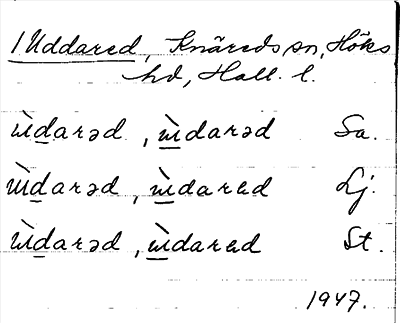 1 Uddared, Knäreds sn, Höks
hd, Hall. l.
ùdarəd, ùdarəd Sa.
ùdarəd, ùdarəd Lj.
ùdarəd, ùdarəd St.
1947.